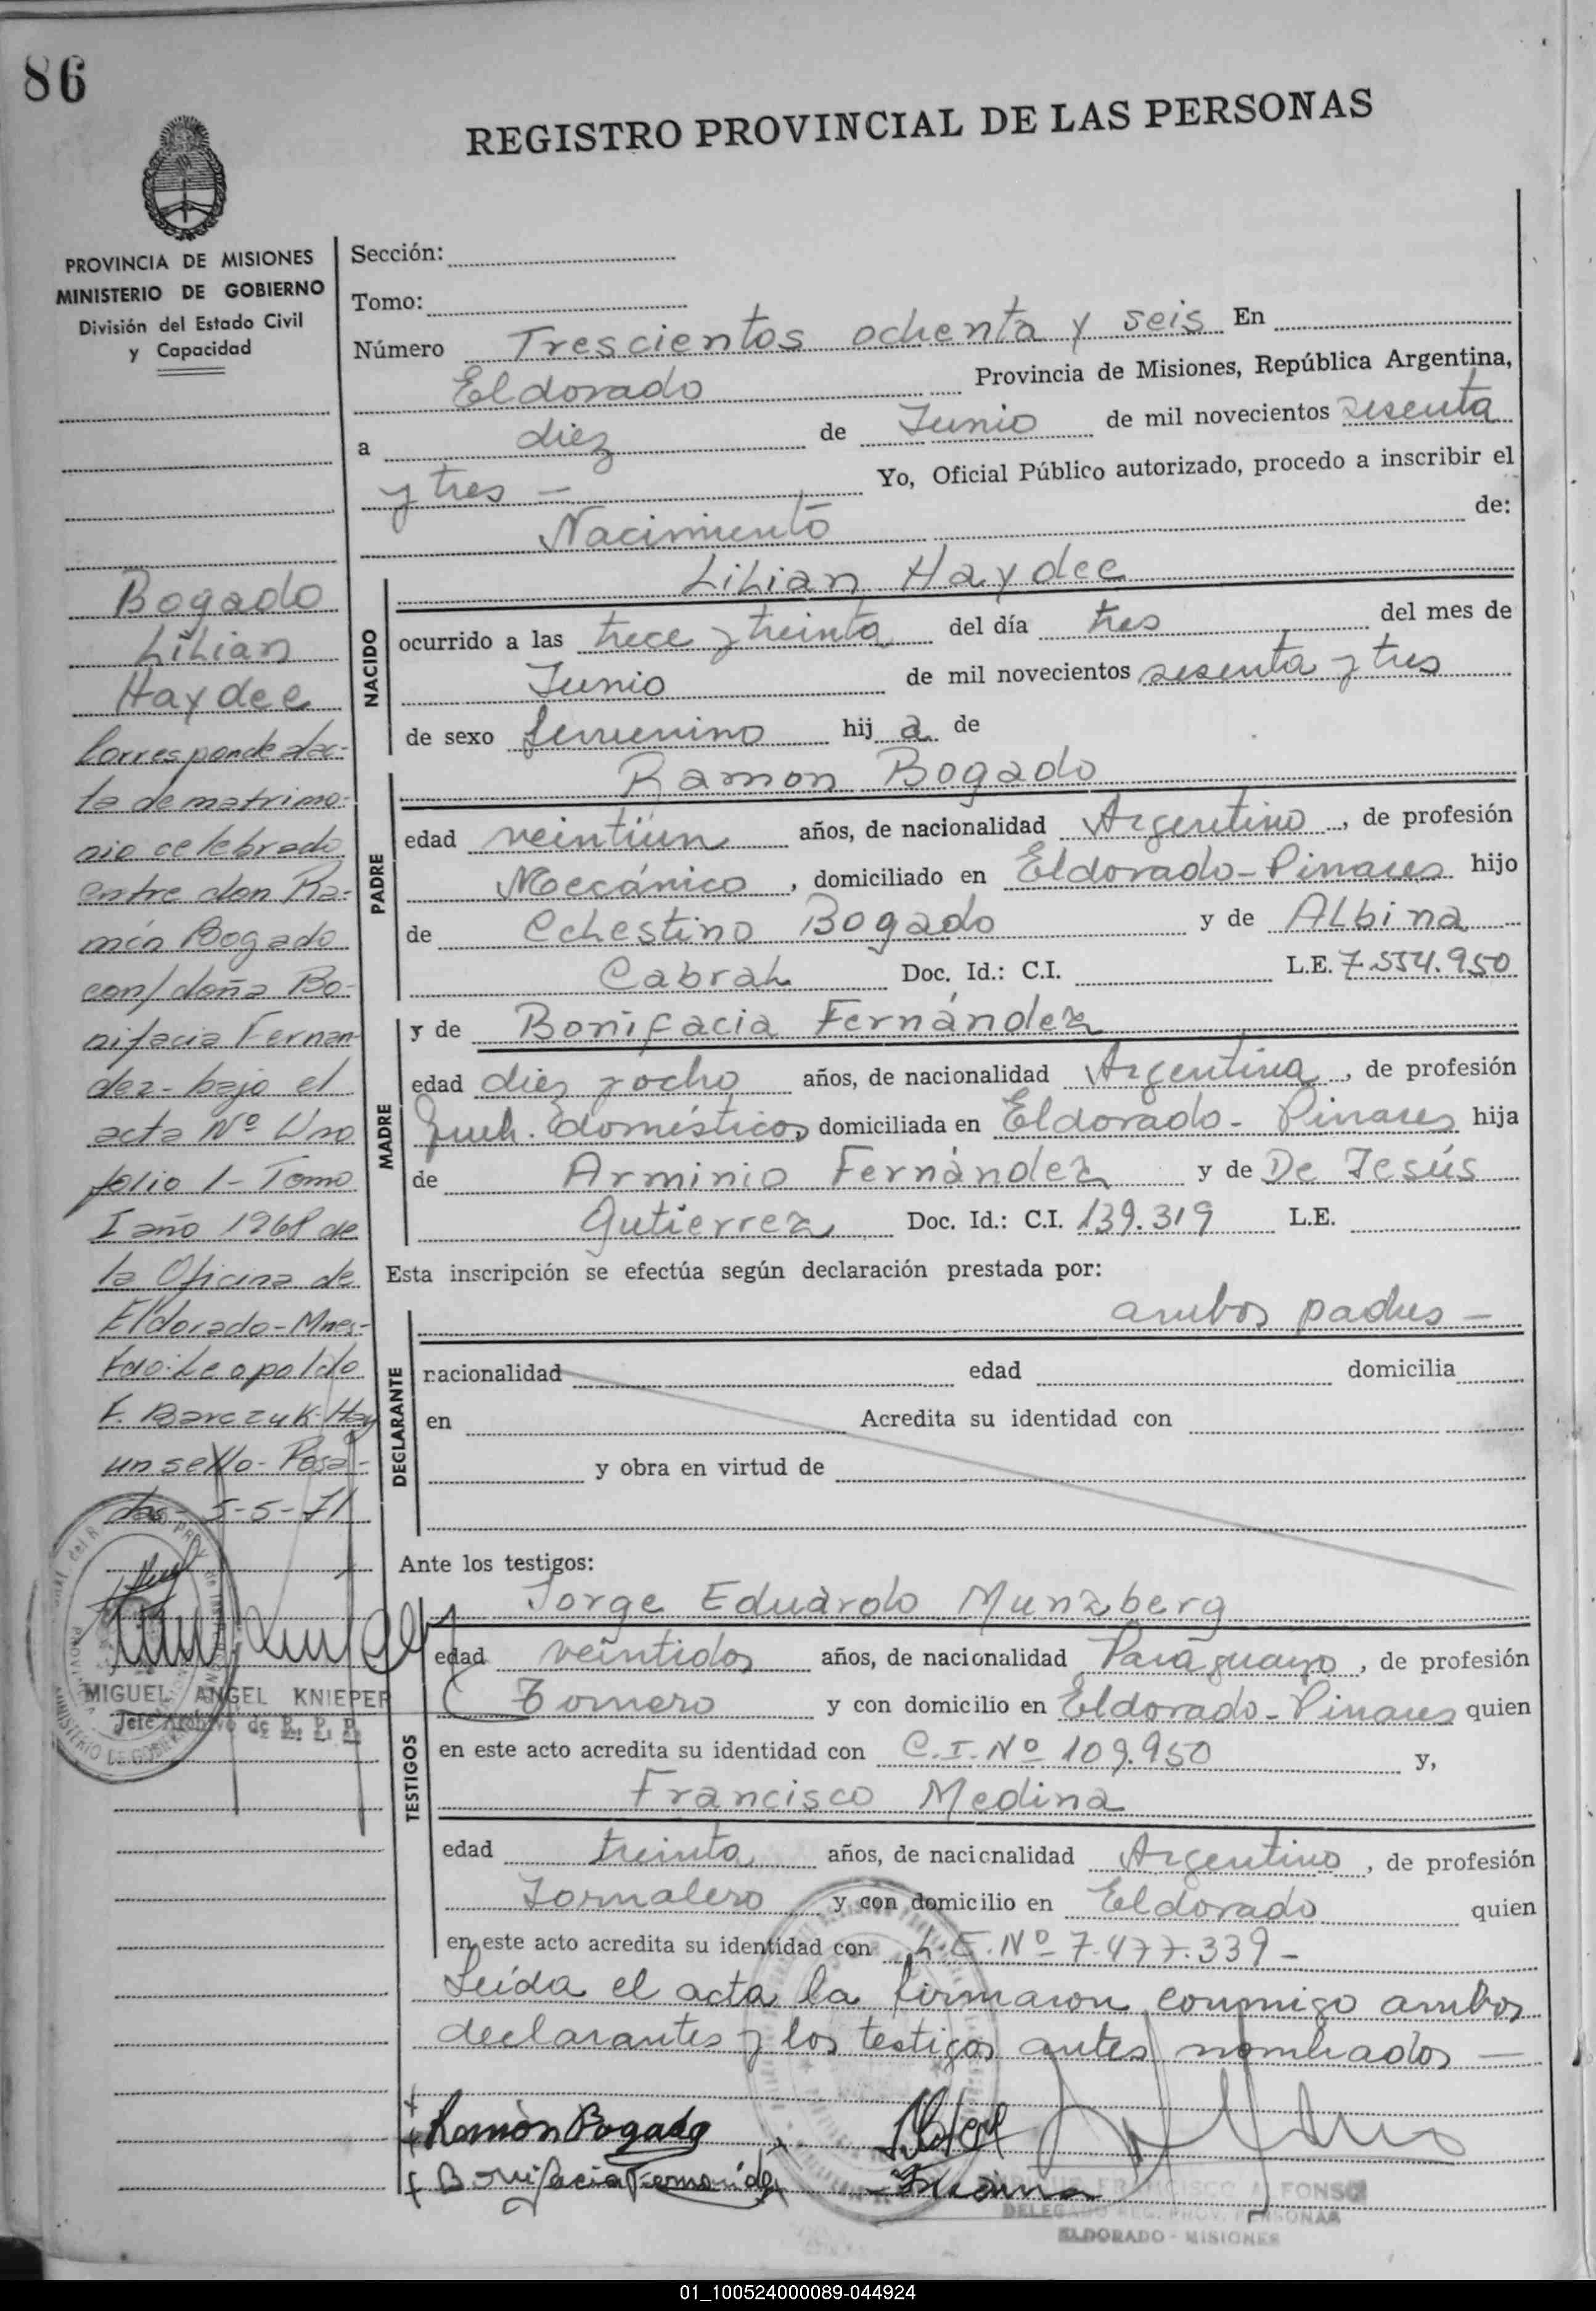 86
REGISTRO PROVINCIAL DE LAS PERSONAS
PROVINCIA DE MISIONES
MINISTERIO DE GOBIERNO
División del Estado Civil
y Capacidad
Bogado
Lilian
Haydee
Corresponde al ac-
ta de matrimo-
nio celebrado
entre don Ra-
món Bogado
con/ doña Bo-
nifacia Fernan-
dez - bajo el
acta Nº Uno
folio 1 - Tomo
I año 1968 de
la Oficina de
Eldorado - Mnes-
Fdo: Leopoldo
F. Barczuk - Hay
un sello - Posa-
das - 5-5-71
MIGUEL ANGEL KNIEPER
Jefe Archivo de R. P. P.
Sección:
Tomo:
Número Trescientos ochenta y seis En
Eldorado Provincia de Misiones, República Argentina,
a diez de Junio de mil novecientos sesenta
y tres - Yo, Oficial Público autorizado, procedo a inscribir el
Nacimiento de:
NACIDO
Lilian Haydee
ocurrido a las trece y treinta del día tres del mes de
Junio de mil novecientos sesenta y tres
de sexo femenino hij a de
PADRE
Ramon Bogado
edad veintiun años, de nacionalidad Argentino, de profesión
Mecánico, domiciliado en Eldorado - Pinares hijo
de Celestino Bogado y de Albina
Cabral Doc. Id.: C.I. L.E. 7.554.950
MADRE
y de Bonifacia Fernández
edad diez y ocho años, de nacionalidad Argentina, de profesión
Queh. Domésticos domiciliada en Eldorado - Pinares hija
de Arminio Fernández y de De Jesús
Gutierrez Doc. Id.: C.I. 139.319 L.E.
Esta inscripción se efectúa según declaración prestada por:
ambos padres -
DECLARANTE
nacionalidad edad domicilia
en Acredita su identidad con
y obra en virtud de
Ante los testigos:
TESTIGOS
Jorge Eduardo Munzberg
edad veintidos años, de nacionalidad Paraguayo, de profesión
Tornero y con domicilio en Eldorado - Pinares quien
en este acto acredita su identidad con C.I. Nº 109.950 y,
Francisco Medina
edad treinta años, de nacionalidad Argentino, de profesión
Jornalero y con domicilio en Eldorado quien
en este acto acredita su identidad con L.E. Nº 7.477.339 -
Leída el acta la firmaron conmigo ambos
declarantes y los testigos antes nombrados -
Ramón Bogado
Bonifacia Fernandez
FRANCISCO A. FONSO
DELEGADO REG. PROV. PERSONAS
ELDORADO - MISIONES
01_100524000089-044924